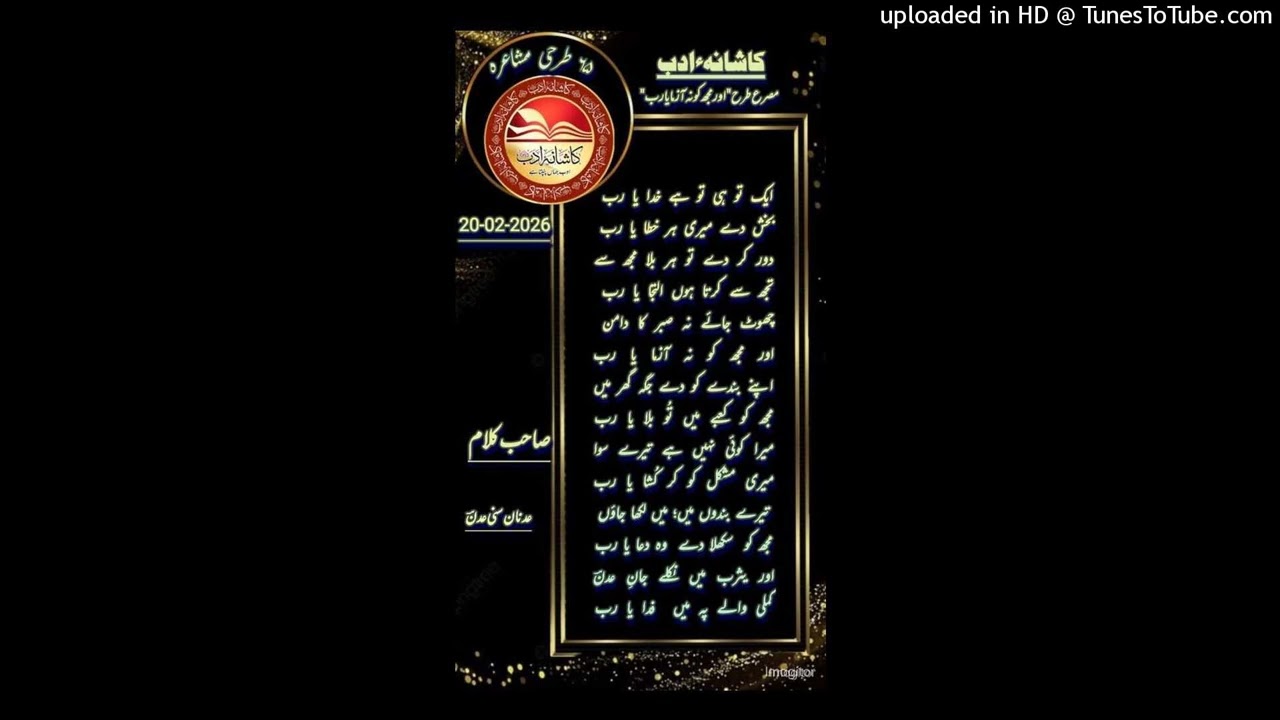 uploaded in HD @ TunesToTube.com
کاشانہءادب
مصرع طرح "اور مجھ کو نہ آزما یا رب"
طرحی مشاعرہ
کاشانۂ ادب
20-02-2026
ایک تو ہی تو ہے خدا یا رب
بخش دے میری ہر خطا یا رب
دور کر دے تو ہر بلا مجھ سے
تجھ سے کرتا ہوں التجا یا رب
چھوٹ جائے نہ صبر کا دامن
اور مجھ کو نہ آزما یا رب
اپنے بندے کو دے جگہ گھر میں
مجھ کو کعبے میں تُو بلا یا رب
میرا کوئی نہیں ہے تیرے سوا
میری مشکل کو کر کُشا یا رب
تیرے بندوں میں؛ میں لکھا جاؤں
مجھ کو سکھلا دے وہ دعا یا رب
اور یثرب میں نکلے جانِ عدنؔ
کملی والے پہ میں فدا یا رب
صاحب کلام
عدنان سنی عدنؔ
Imagitor